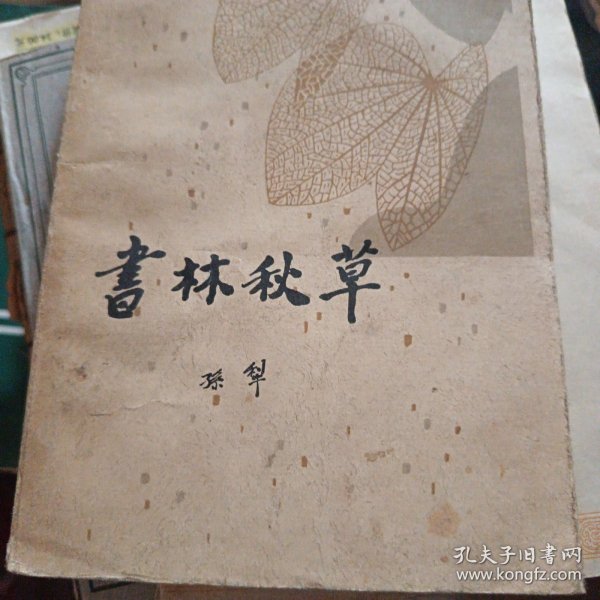 書林秋草
孫犁
孔夫子旧書网
www.kongfz.com